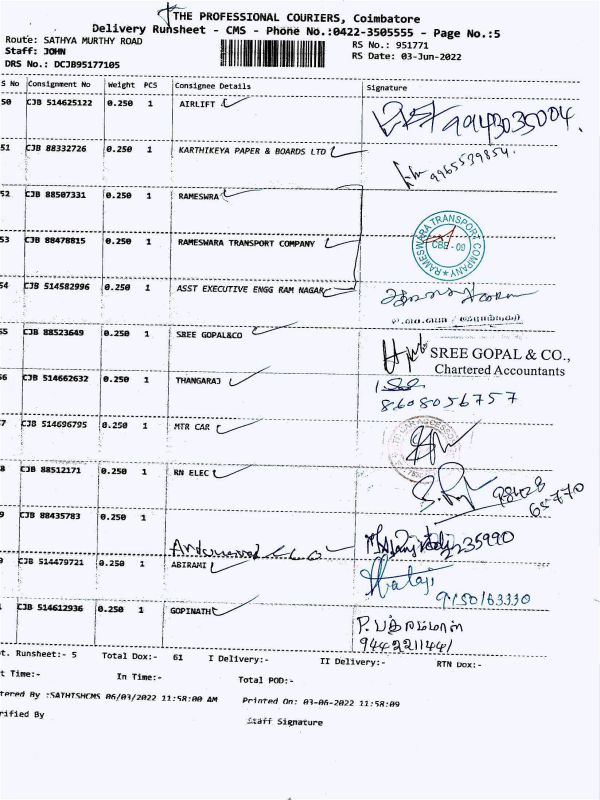 THE PROFESSIONAL COURIERS, Coimbatore
Delivery Runsheet - CMS - Phone No.:0422-3505555 - Page No.:5
Route: SATHYA MURTHY ROAD
RS No.: 951771
Staff: JOHN
RS Date: 03-Jun-2022
DRS No.: DCJB95177105
S No Consignment No Weight PCS Consignee Details Signature
50 CJB 514625122 0.250 1 AIRLIFT
51 CJB 88332726 0.250 1 KARTHIKEYA PAPER & BOARDS LTD 9965539854.
52 CJB 88507331 0.250 1 RAMESWRA
53 CJB 88478815 0.250 1 RAMESWARA TRANSPORT COMPANY
RAMESWARA TRANSPORT COMPANY
CBE - 09
54 CJB 514582996 0.250 1 ASST EXECUTIVE ENGG RAM NAGAR
55 CJB 88523649 0.250 1 SREE GOPAL&CO
SREE GOPAL & CO.,
Chartered Accountants
56 CJB 514662632 0.250 1 THANGARAJ
8608056757
7 CJB 514696795 0.250 1 MTR CAR
8 CJB 88512171 0.250 1 RN ELEC
98428
65770
9 CJB 88435783 0.250 1
2235990
CJB 514479721 0.250 1 ABIRAMI
9150163330
CJB 514612936 0.250 1 GOPINATH
9442211441
t. Runsheet:- 5 Total Dox:- 61 I Delivery:- II Delivery:- RTN Dox:-
t Time:- In Time:- Total POD:-
tered By :SATHISHCMS 06/03/2022 11:58:00 AM Printed On: 03-06-2022 11:58:09
rified By Staff Signature